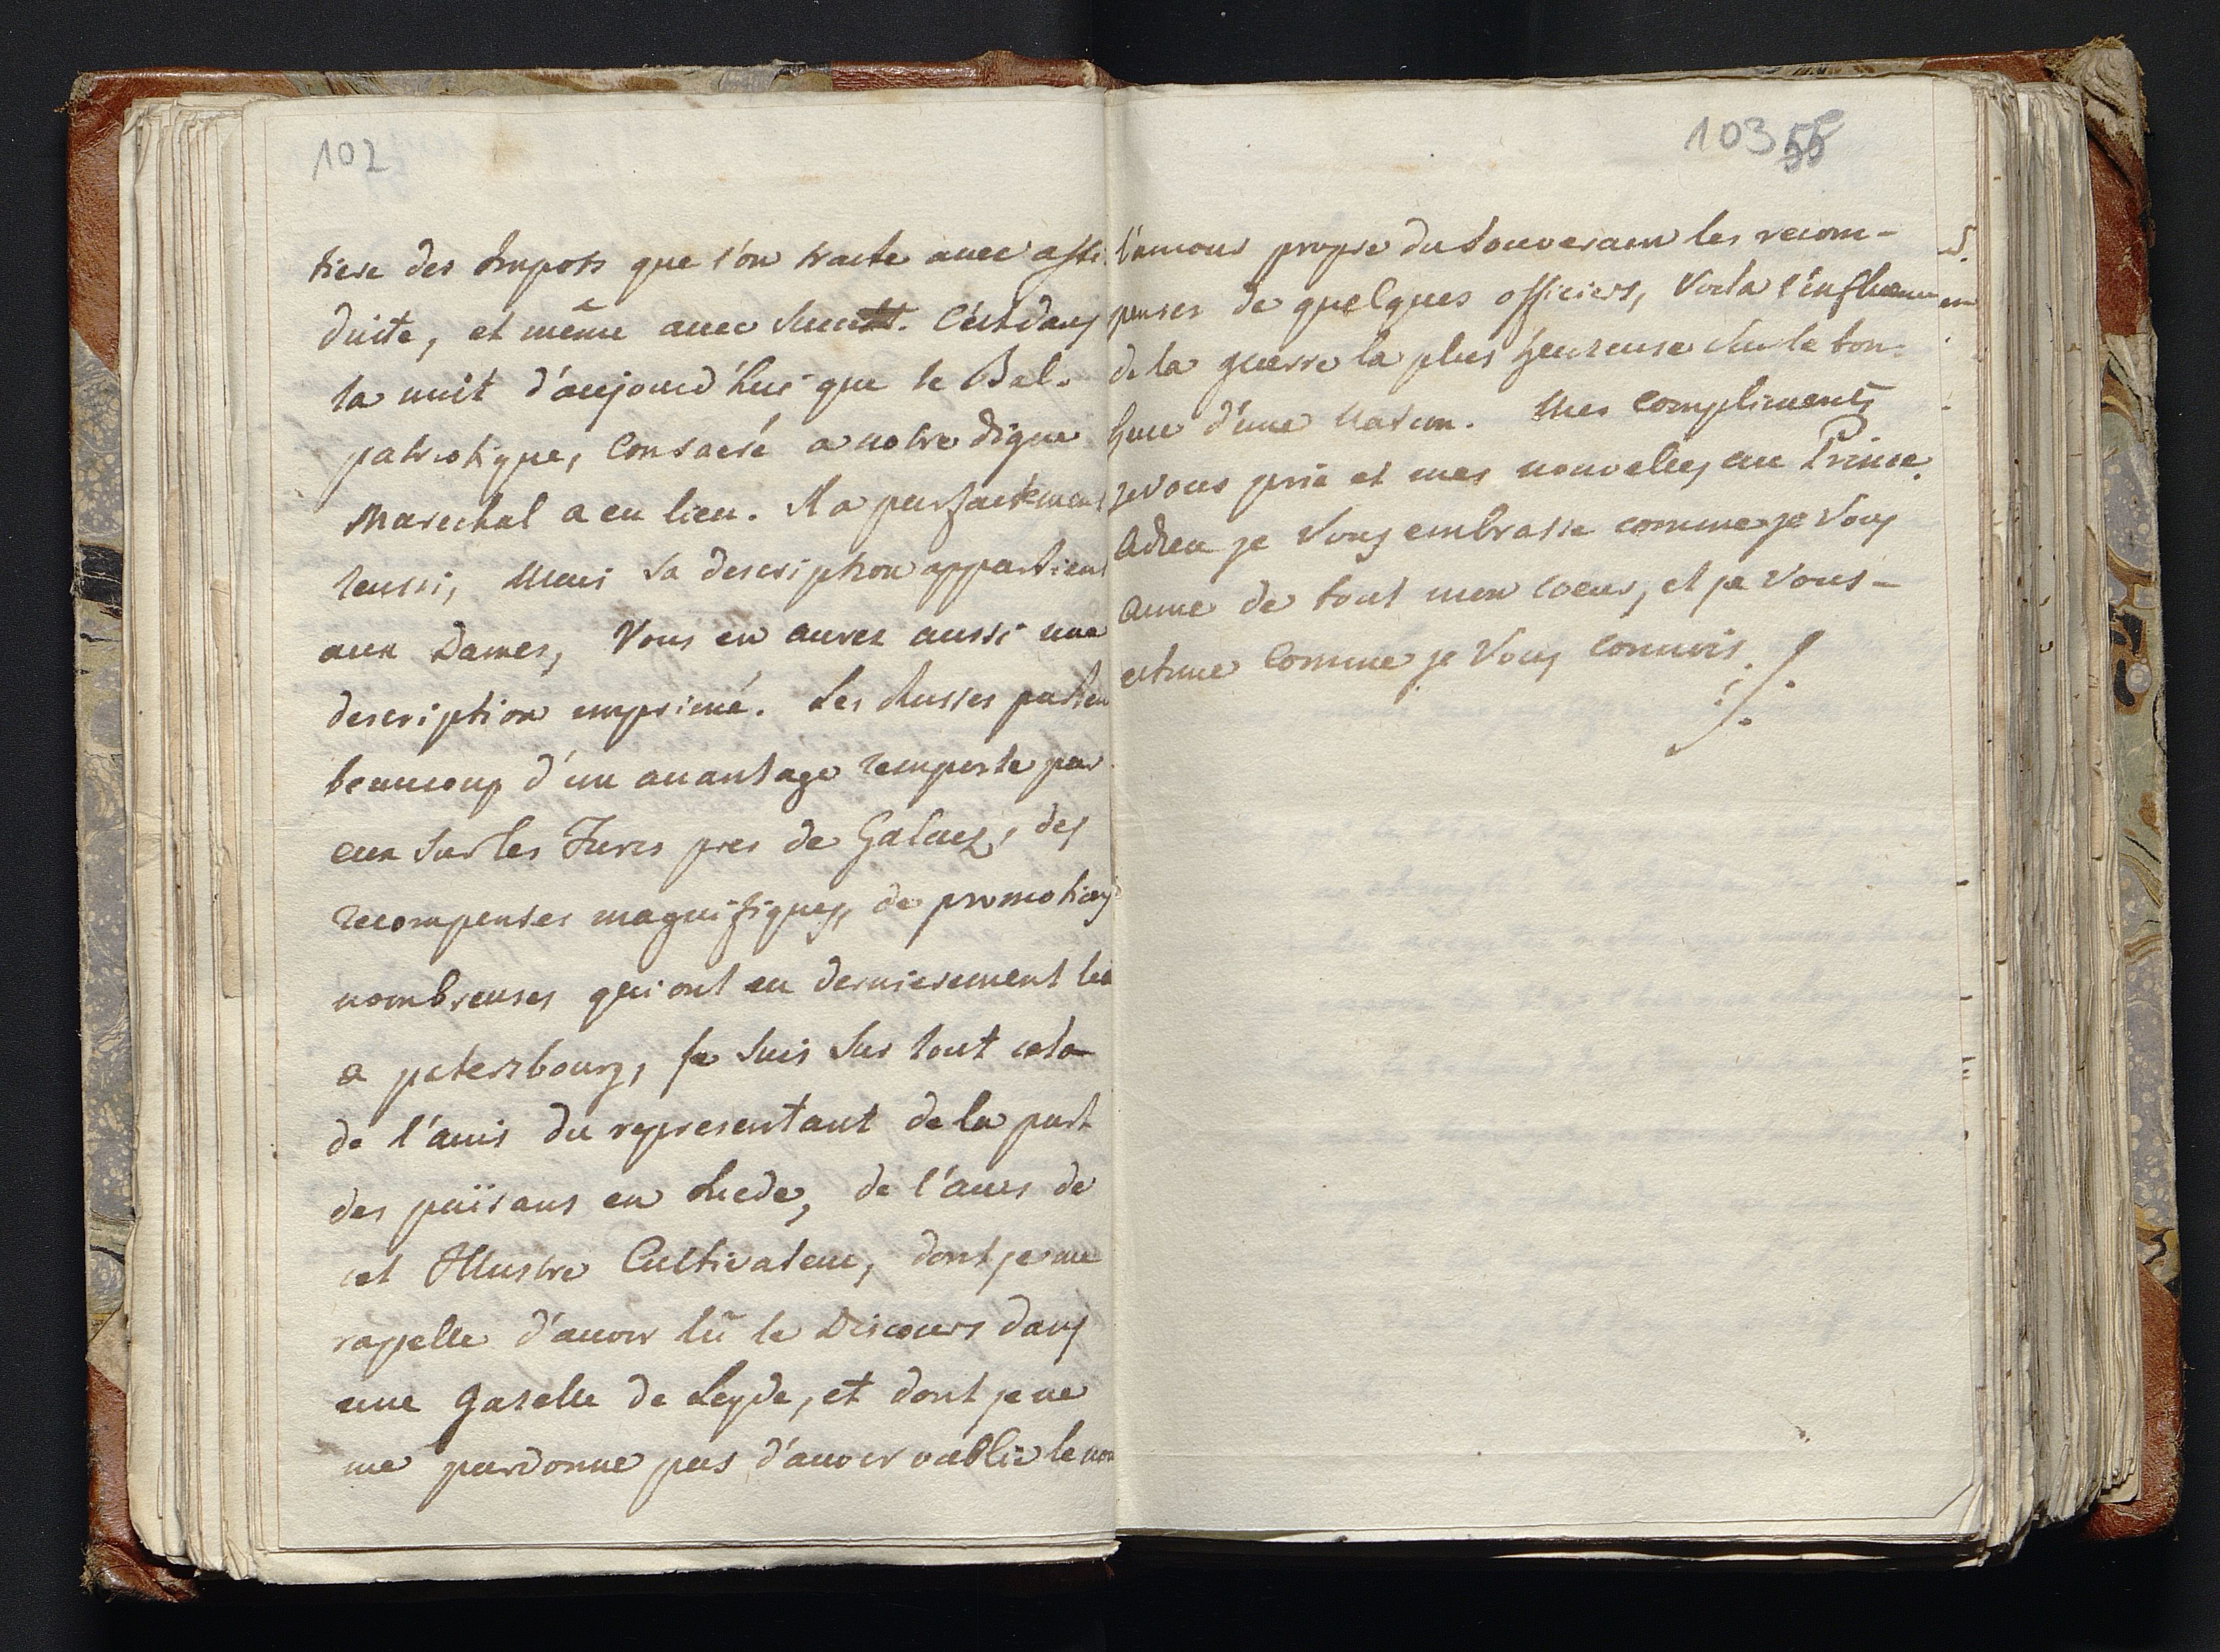 102
tiere des Impots que l'on traite avec assi-
duite, et même avec C'est dans
la nuit d'aujourd'hui que le Bal
patriotique, Consacré a notre digne
Marechal a eu lieu. Il a parfaitement
reussi, Mais sa description appartient
aux Dames, Vous en aurez aussi une
description imprimé. Les Russes parlent
beaucoup d'un avantage remporte par
eux sur les Turcs pres de Galacz, des
recompenses magnifiques, de promotions
nombreuses qui ont eu dernierement lieu
a petersbourg, je suis sur tout cela
de l'avis du representant de la part
des païsans en Suede, de l'avis de
cet Illustre Cultivateur, dont je me
rappelle d'avoir lû le Discours dans
une Gazette de Leyde, et dont je ne
me pardonne pas d'avoir oublié le nom
103 55
l'amour propre du Souverain les recom-
penses de quelques officiers, Voila l'influence
de la guerre la plus heureuse sur le bon-
heur d'une Nation. Mes Compliments
je Vous prie et mes nouvelles au Prince.
Adieu je Vous embrasse comme je Vous
aime de tout mon Coeur, et je Vous
estime Comme je Vous connois ./.